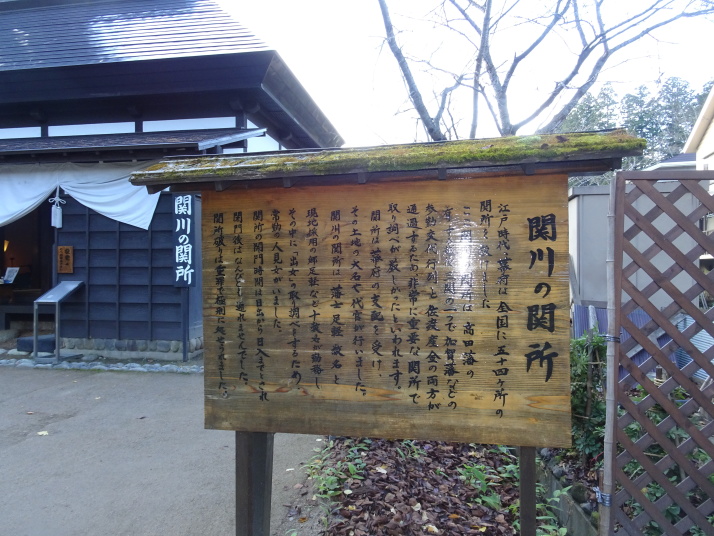 関川の関所
江戸時代、幕府は全国に五十四ヶ所の
関所を設けました。
この関川の関所は、高田藩の
関の一つで加賀藩などの
参勤交代の行列と佐渡産金の両方が
通過するため、非常に重要な関所で
取り調べが厳しかったといわれます。
関所は、幕府の支配を受け、
その土地の大名や代官が行いました。
関川の関所は、藩士、足軽数名と
現地採用の御足軽など十数名が勤務し
その中に「出女」の取調べをするため
常勤の人見女がいました。
関所の開門時間は日出から日入までで、これ
関門後はなんびとも通れませんでした。
関所破りは重罪で極刑に処せられました。
関川の関所